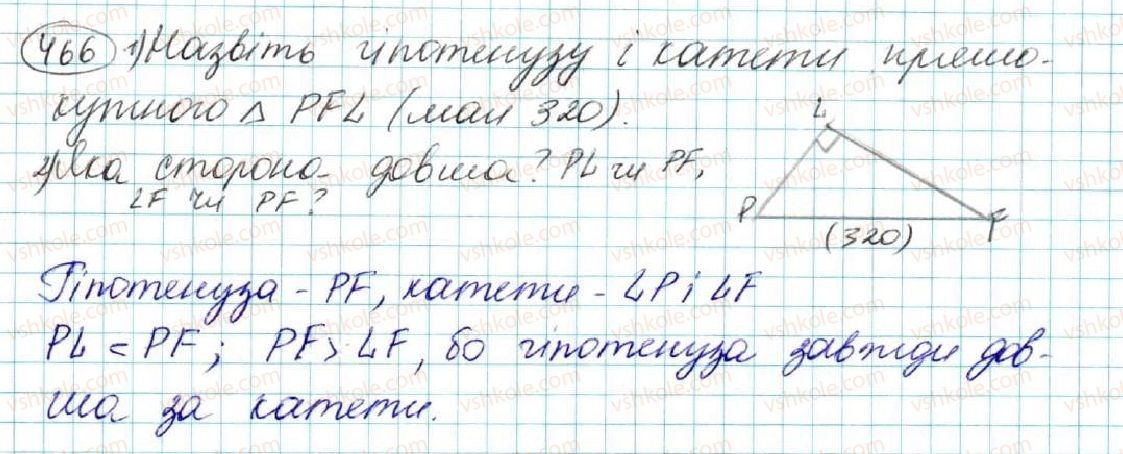 466 1) Назвіть гіпотенузу і катети прямо-
кутного △ PFL (мал 320).
2) Яка сторона довша? PL чи PF,
LF чи PF?
L
P
F
(320)
Гіпотенуза - PF, катети - LP і LF
PL < PF; PF > LF, бо гіпотенуза завжди дов-
ша за катети.
vshkole.com